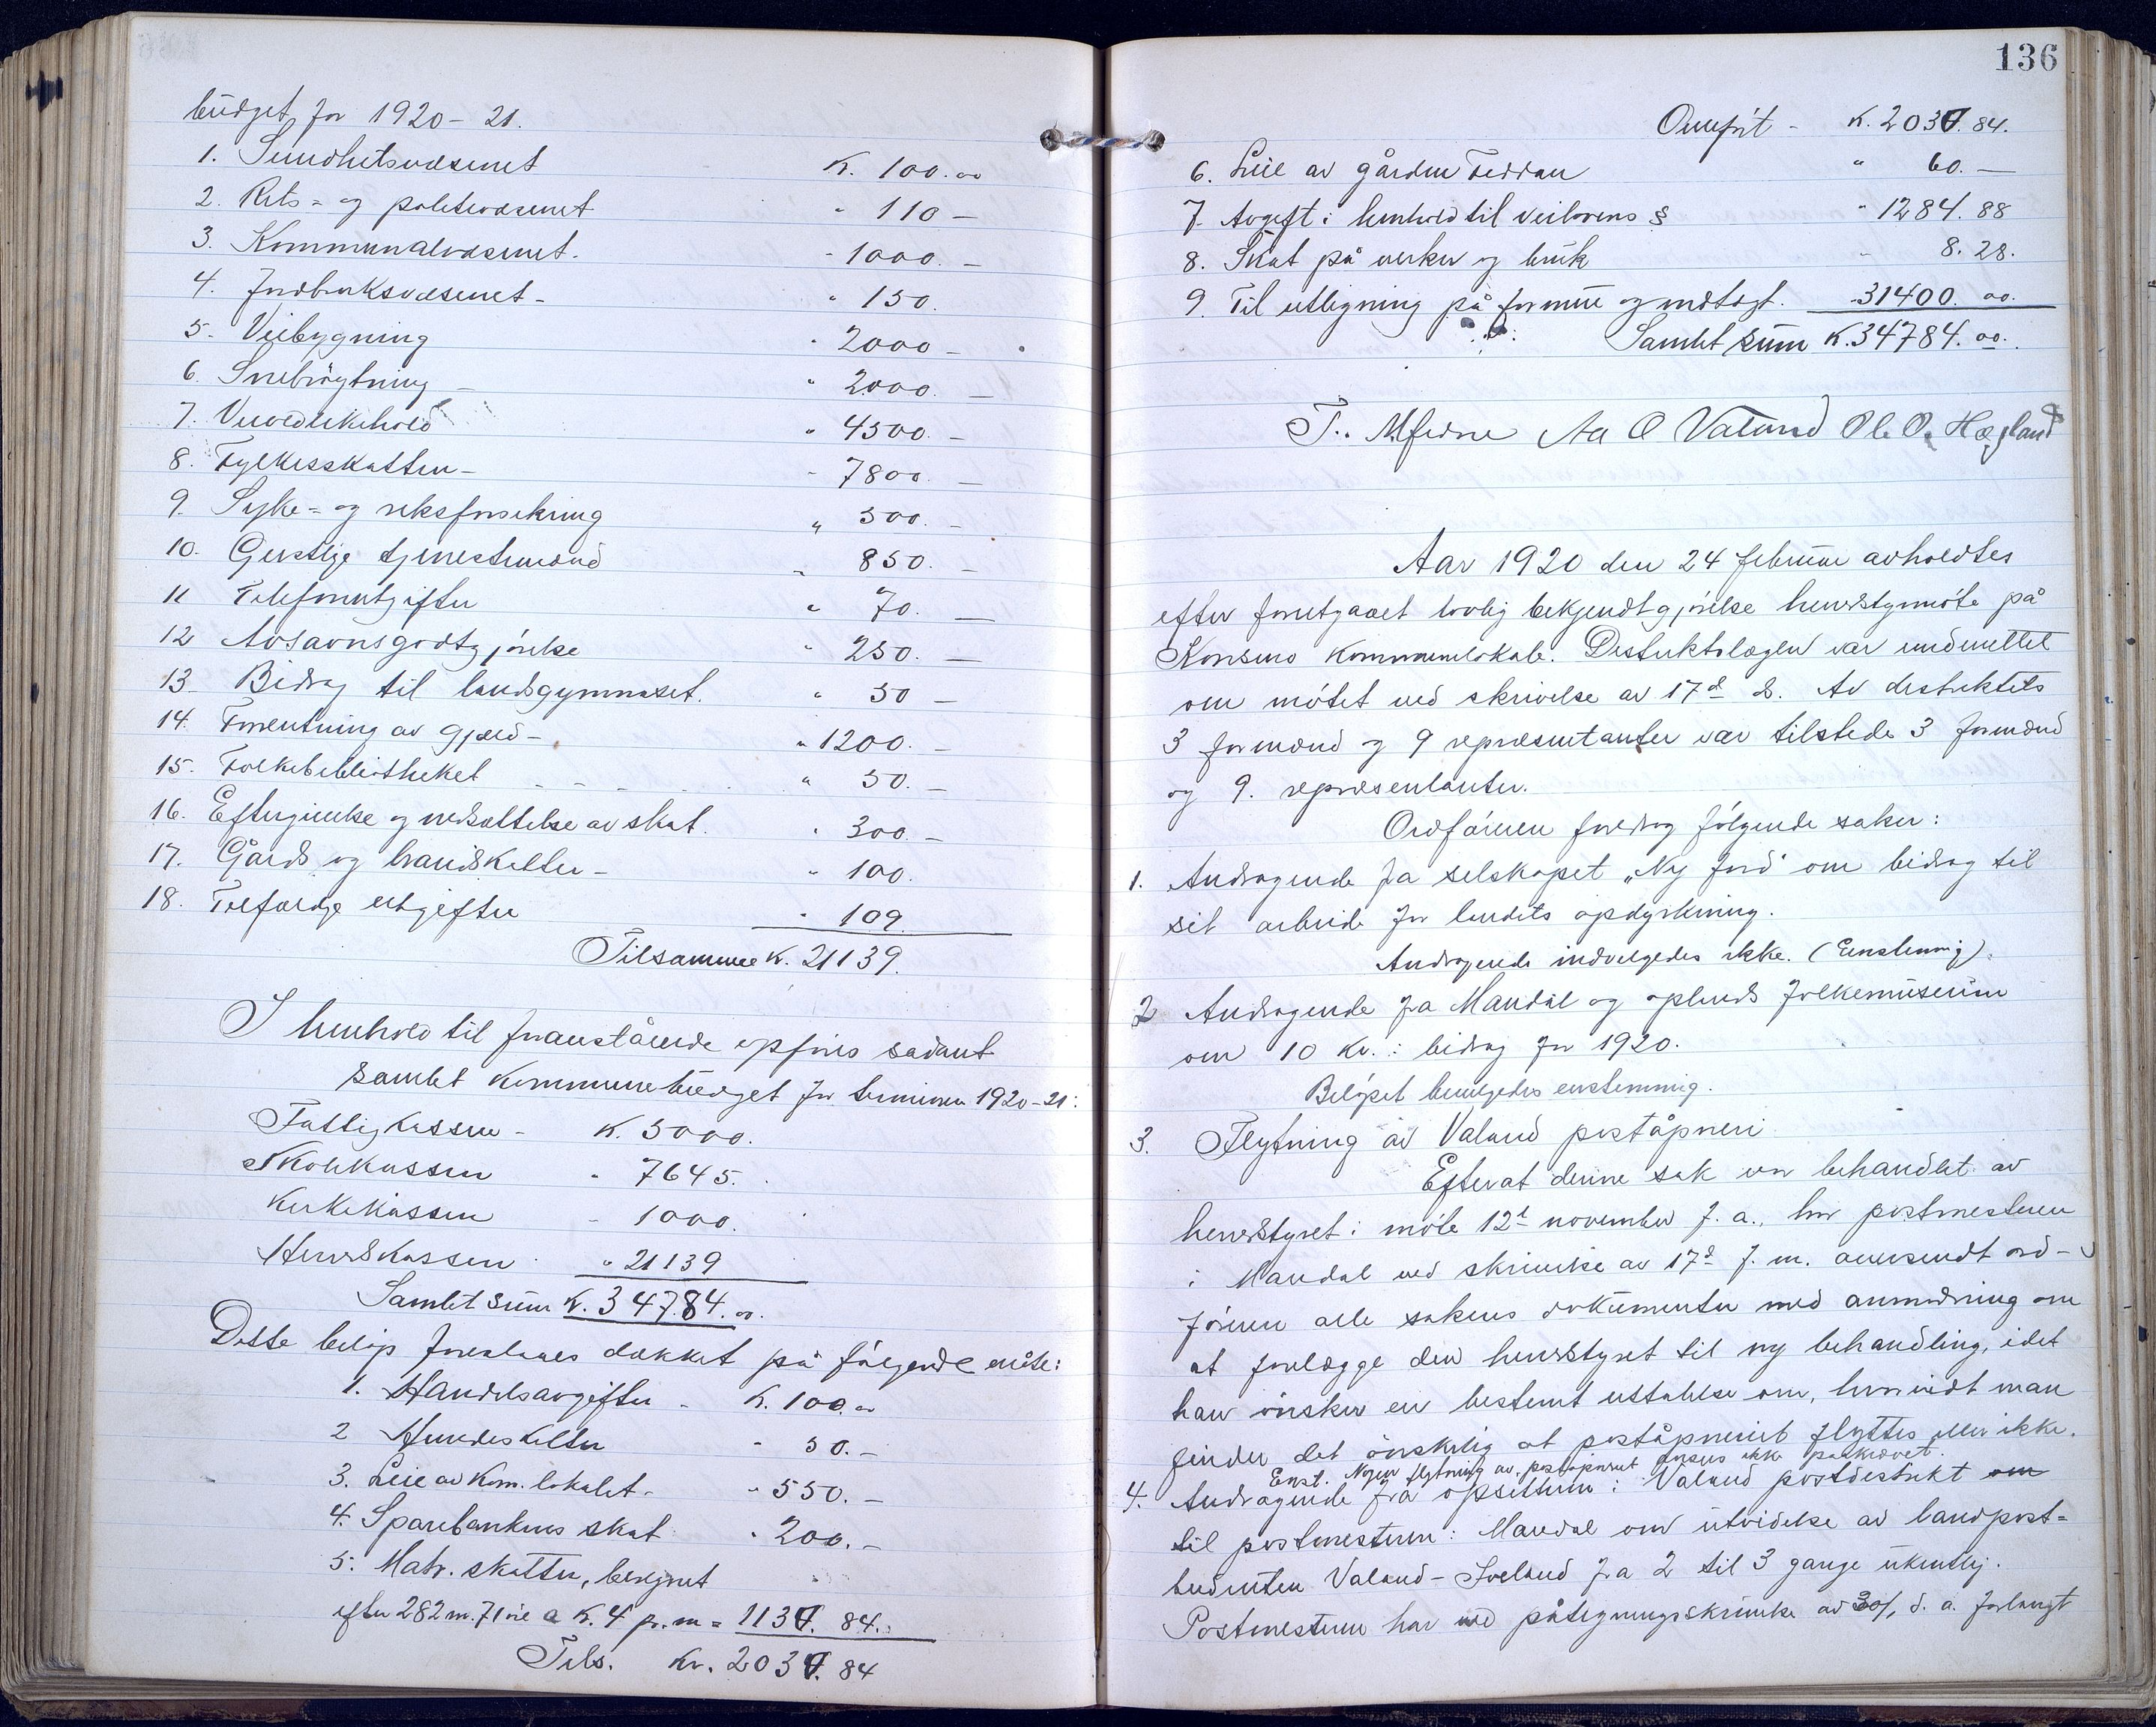 budget for 1920-21.
1. Sundhetsvæsenet K. 100.00
2. Rets- og politivæsenet " 110 —
3. Kommunalvæsenet. - 1000. —
4. Jordbruksvæsenet - " 150.
5. Veibygning " 2000 —
6. Snebrøytning — " 2000. —
7. Veivedlikehold " 4500. —
8. Fylkesskatten — - 7800. —
9. Syke- og riksforsikring " 500. —
10. Geistlige tjenestemænd " 850. —
11 Telefonutgifter " 70. —
12 Avsavnsgodtgjørelse " 250. —
13. Bidrag til landsgymnaset. " 50 —
14. Forrentning av gjæld - " 1200. —
15. Folkebibliotheket " 50. —
16. Eftergivelse og nedsættelse av skat. " 300. —
17. Gårds og brandskatter - " 100.
18. Tilfældige utgifter " 109.
Tilsammen K. 21139.
I henhold til foranstående opføres sådant
samlet kommunebudget for terminen 1920-21:
Fattigkassen - K. 5000.
Skolekassen " 7645.
Kirkekassen - 1000.
Herredskassen " 21139
Samlet sum K. 34784.00.
Dette beløp foreslaaes dækket på følgende måte:
1. Handelsavgifter - K. 100.00
2 Hundeskatter " 50. —
3. Leie av Kom. lokalet - " 550. —
4. Sparebankens skat " 200. —
5. Matr. skatten, beregnet
efter 282 m. 71 øre a K. 4 pr. m = 1131. 84.
Tils. Kr. 2031. 84
136
Omført - K. 2031. 84.
6. Leie av gården Feddan " 60. —
7. Avgift i henhold til veilovens § " 1284. 88
8. Skat på verker og bruk " 8. 28.
9. Til utligning på formue og indtægt. 31400. 00.
Samlet sum K. 34784. 00.
T. Mjeine Aa O Valand Ole O. Hægland
Aar 1920 den 24 februar avholdtes
efter forutgaaet lovlig bekjendtgjørelse herredstyrmøte på
Konsmo Kommunelokale. Distriktslægen var underrettet
om møtet ved skrivelse av 17d ds. Av distriktets
3 formænd og 9 repræsentanter var tilstede 3 formænd
og 9. repræsentanter.
Ordføreren foredrog følgende saker:
1. Andragende fra selskapet „Ny Jord" om bidrag til
sit arbeide for landets opdyrkning.
Andragende indvilgedes ikke. (Enstemmig).
2 Andragende fra Mandal og oplands folkemuseum
om 10 Kr. i bidrag for 1920.
Beløpet bevilgedes enstemmig.
3. Flytning av Valand poståpneri
Efterat denne sak var behandlet av
herredstyret i møte 12t november f. a., har postmesteren
i Mandal ved skrivelse av 17d f. m. oversendt ord-
føreren alle sakens dokumenter med anmodning om
at forelægge den herredstyret til ny behandling, idet
han ønsker en bestemt uttalelse om, hvorvidt man
finder det ønskelig at poståpneriet flyttes eller ikke.
Enst. Nogen flytning av poståpneriet ansees ikke påkrævet.
4. Andragende fra opsitterne i Valand postdistrikt om
til postmesteren i Mandal om utvidelse av landpost-
budruten Valand - Iveland fra 2 til 3 gange ukentlig.
Postmesteren har ved påtegningsskrivelse av 30/1 d. a. forlangt